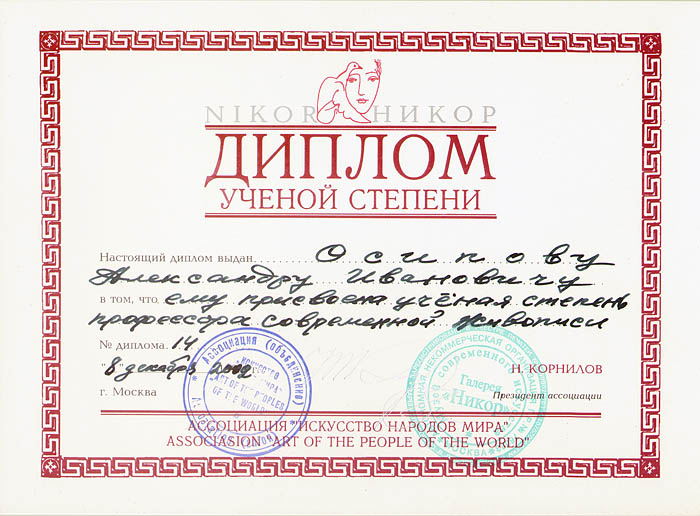 NIKOR НИКОР
ДИПЛОМ
УЧЕНОЙ СТЕПЕНИ
Настоящий диплом выдан Осипову
Александру Ивановичу
в том, что ему присвоена учёная степень
профессора современной живописи
№ диплома 14
"8" декабря 2002
г. Москва
Н. КОРНИЛОВ
Президент ассоциации
Ассоциация (объединение)
ИСКУССТВО
"ART OF THE PEOPLES
OF THE WORLD"
НЕКОММЕРЧЕСКАЯ ОРГАНИЗАЦИЯ
современного
Галерея
"Никор"
МОСКВА
АССОЦИАЦИЯ "ИСКУССТВО НАРОДОВ МИРА"
ASSOCIASION "ART OF THE PEOPLE OF THE WORLD"